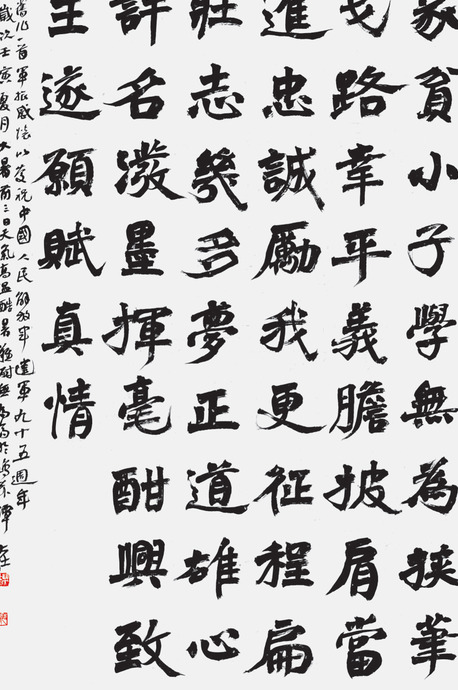 家貧小子學無為挾筆
戈路幸平義膽披肩當
進忠誠勵我更征程扁
壯志幾多夢正道雄心
許名潑墨揮毫酣興致
遂願賦真情
作一首軍旅以慶祝中國人民解放軍建軍九十五週年
歲次壬寅夏月大暑前三日天氣高溫酷暑難耐無